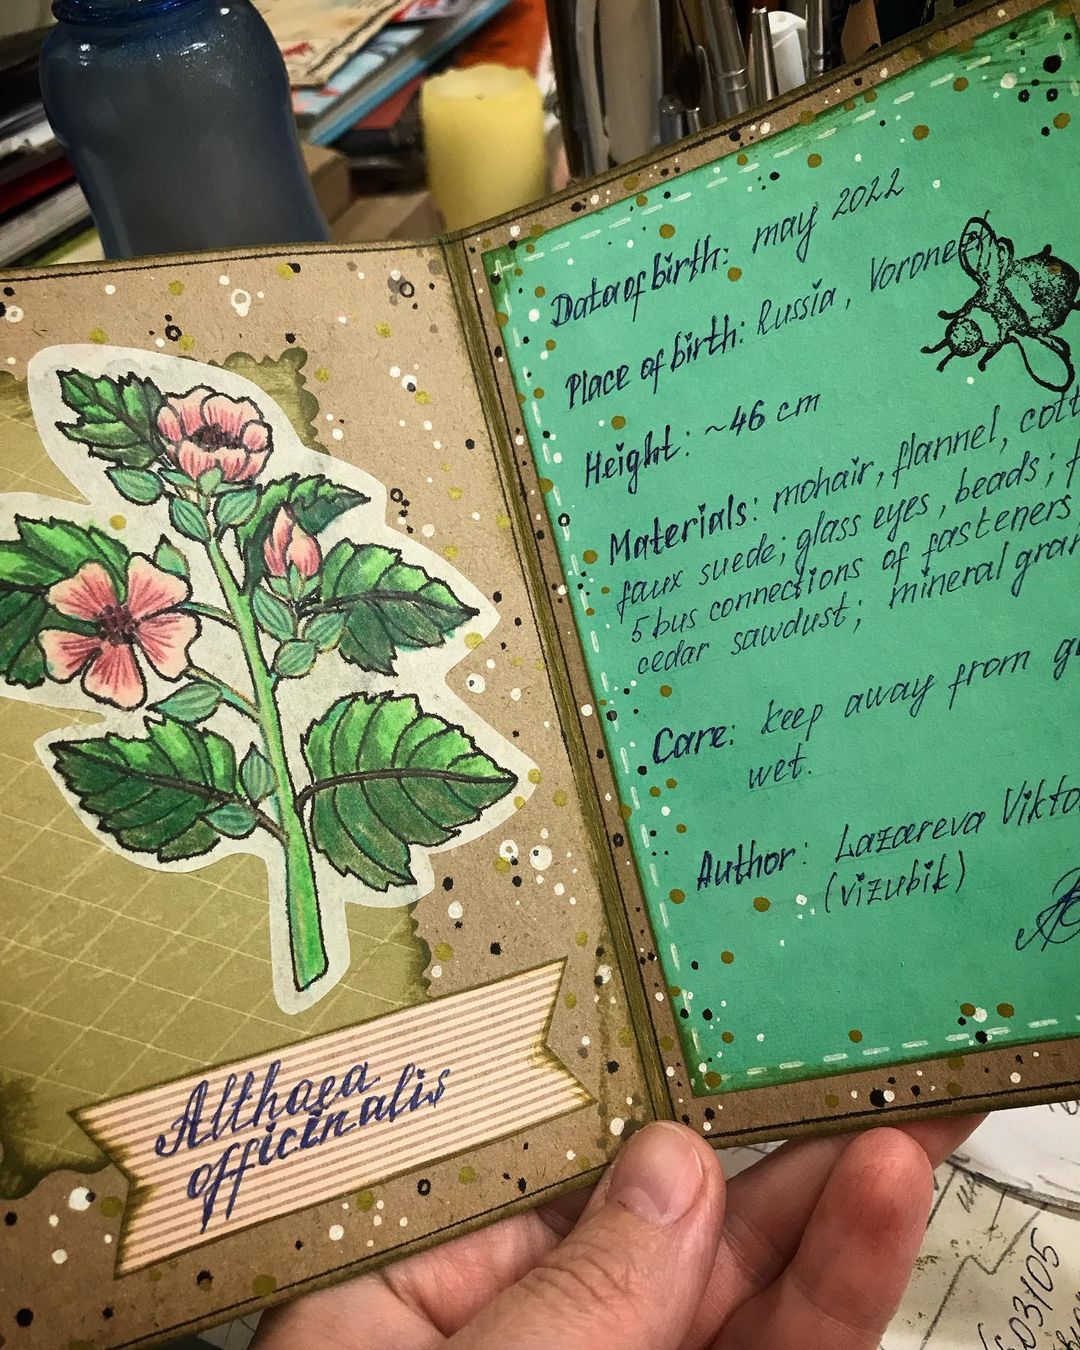 Althaea
officinalis
Data of birth: may 2022
Place of birth: Russia, Voronezh
Height: ~46 cm
Materials: mohair, flannel,
faux suede; glass eyes, beads;
5 bus connections of fasteners
cedar sawdust; mineral
Care: keep away from
wet.
Author: Lazareva
(vizubik)
603105